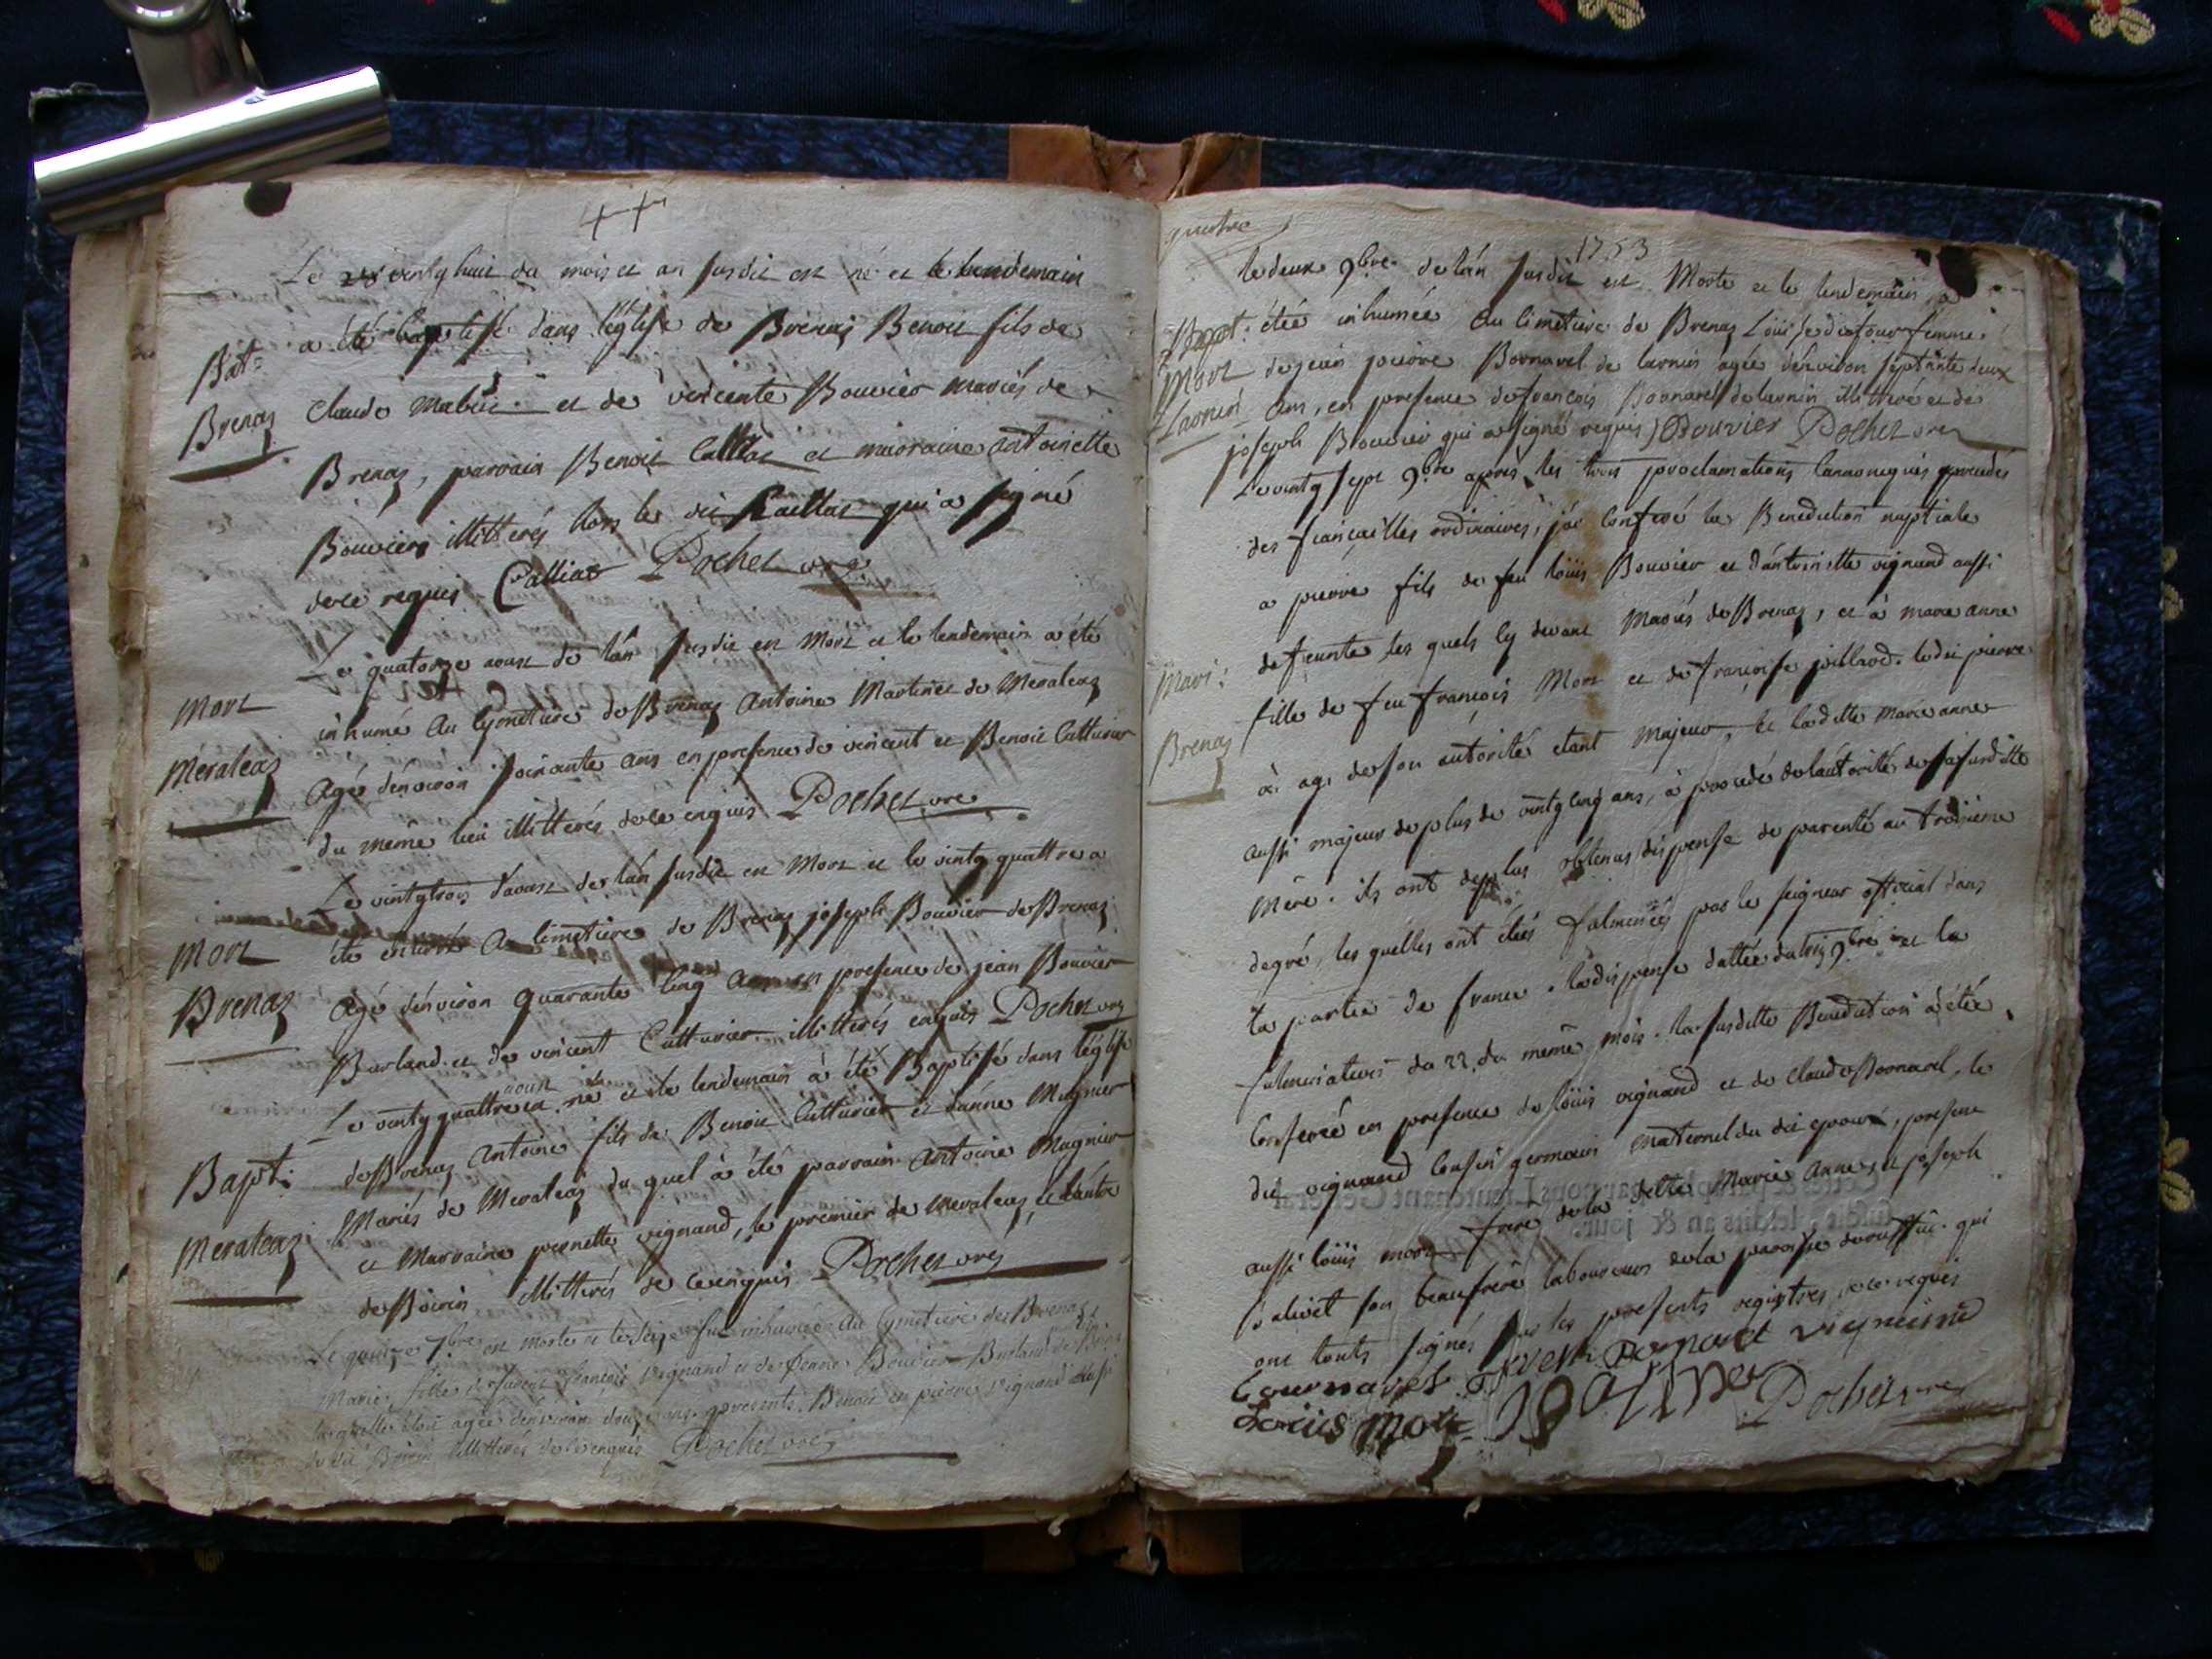 Le 28 vintg huit du mois et an susdit est né et le lendemain
Bat=
a été baptisé dans l'église de Brenaz Benoit fils de
Brenaz
Claude et de vincente Bouvier mariés de
Brenaz, parrain Benoit Calliat et marraine Antoinette
Bouvier illitterés hors le dit Caillat qui a signé
de ce requis Calliat Pochet vre
Le quatorze aoust de l'án susdit est Mort et le lendemain a été
Mort
inhumé Au Cymetiere de Brenaz Antoine Martinet de Meraleaz
Meraleaz
Agé dénviron soixante ans en presence de vincent et Benoit Cutturier
du même lieu illitterés de ce enquis Pochet vre
Le vintgtrois d'aoust de l'án susdit est Mort et le vintg quattre a
Mort
été enterré Au Cimetiere de Brenaz joseph Bouvier de Brenaz
Brenaz
Agé dénviron quarante Cinq Ans en presence de jean Bouvier
Burland et de vincent Cutturier illitterés enquis Pochet vre
aoust
Le vintg quattre est né et le lendemain à été Baptisé dans l'église
Bapt:
de Brenaz Antoine fils de Benoit Cutturier et d'anne Mugnier
Meraleaz
Mariés de Meraleaz du quel à été parrain Antoine Mugnier
et Marraine pernette vignand, le premier de Meraleaz et l'autre
de Boirin illitterés de ce enquis Pochet vre
Le quinze 7bre est morte et le seize fut inhumée Au Cymetiere de Brenaz
Marie fille de françois vignand et de Bouvier Burland de Boirin
laquelle étoit agée dénviron douze ans presents Benoit et pierre vignand aussi
du dit Boirin illitterés de ce enquis Pochet vre
quatre
1753
le deux 9bre de l'án susdit est Morte et le lendemain a
étée inhumée Au Cimetiere de Brenaz Loüise dufour femme
Mort
de jean pierre Bornarel de Lavnin agée dénviron septante deux
Lavnin
Ans, en presence de françois Bornarel de lavnin illitteré et de
joseph Bouvier qui a signé requis Bouvier Pochet vre
Le vintg sept 9bre après les trois proclamations
des fiançailles ordinaires, j'ái Conferé la Benediction nuptiale
a pierre fils de feu loüis Bouvier et d'ántoinette vignand aussi
defeunte les quels cy devant Mariés de Brenaz, et à marie anne
Mari:
fille de feu françois Mort et de françoise juillard. le dit pierre
Brenaz
à agi de son autorité etant Majeur, et la ditte Marie anne
aussi majeur de plus de vintg cinq ans, à procedé de láutorité de sa susditte
Mère. ils ont de plus obtenus dispense de parenté au troisième
degré, les quelles ont étés fulminées par le seigneur official dans
la partie de france. la dispense dattée du trois 9bre et la
fulminations du 22. du même mois. la susditte Benediction à étée
Conferée en presence de loüis vignand et de Claude Bornarel, le
dit vignand Cousin germain maternel du dit epoux, present
aussi loüis mort frere de la ditte Marie Anne et joseph
son beaufrère laboureurs de la paroisse de Ruffieu qui
ont touts signés sur les presents registres de ce requis
Louis Mort Pochet vre